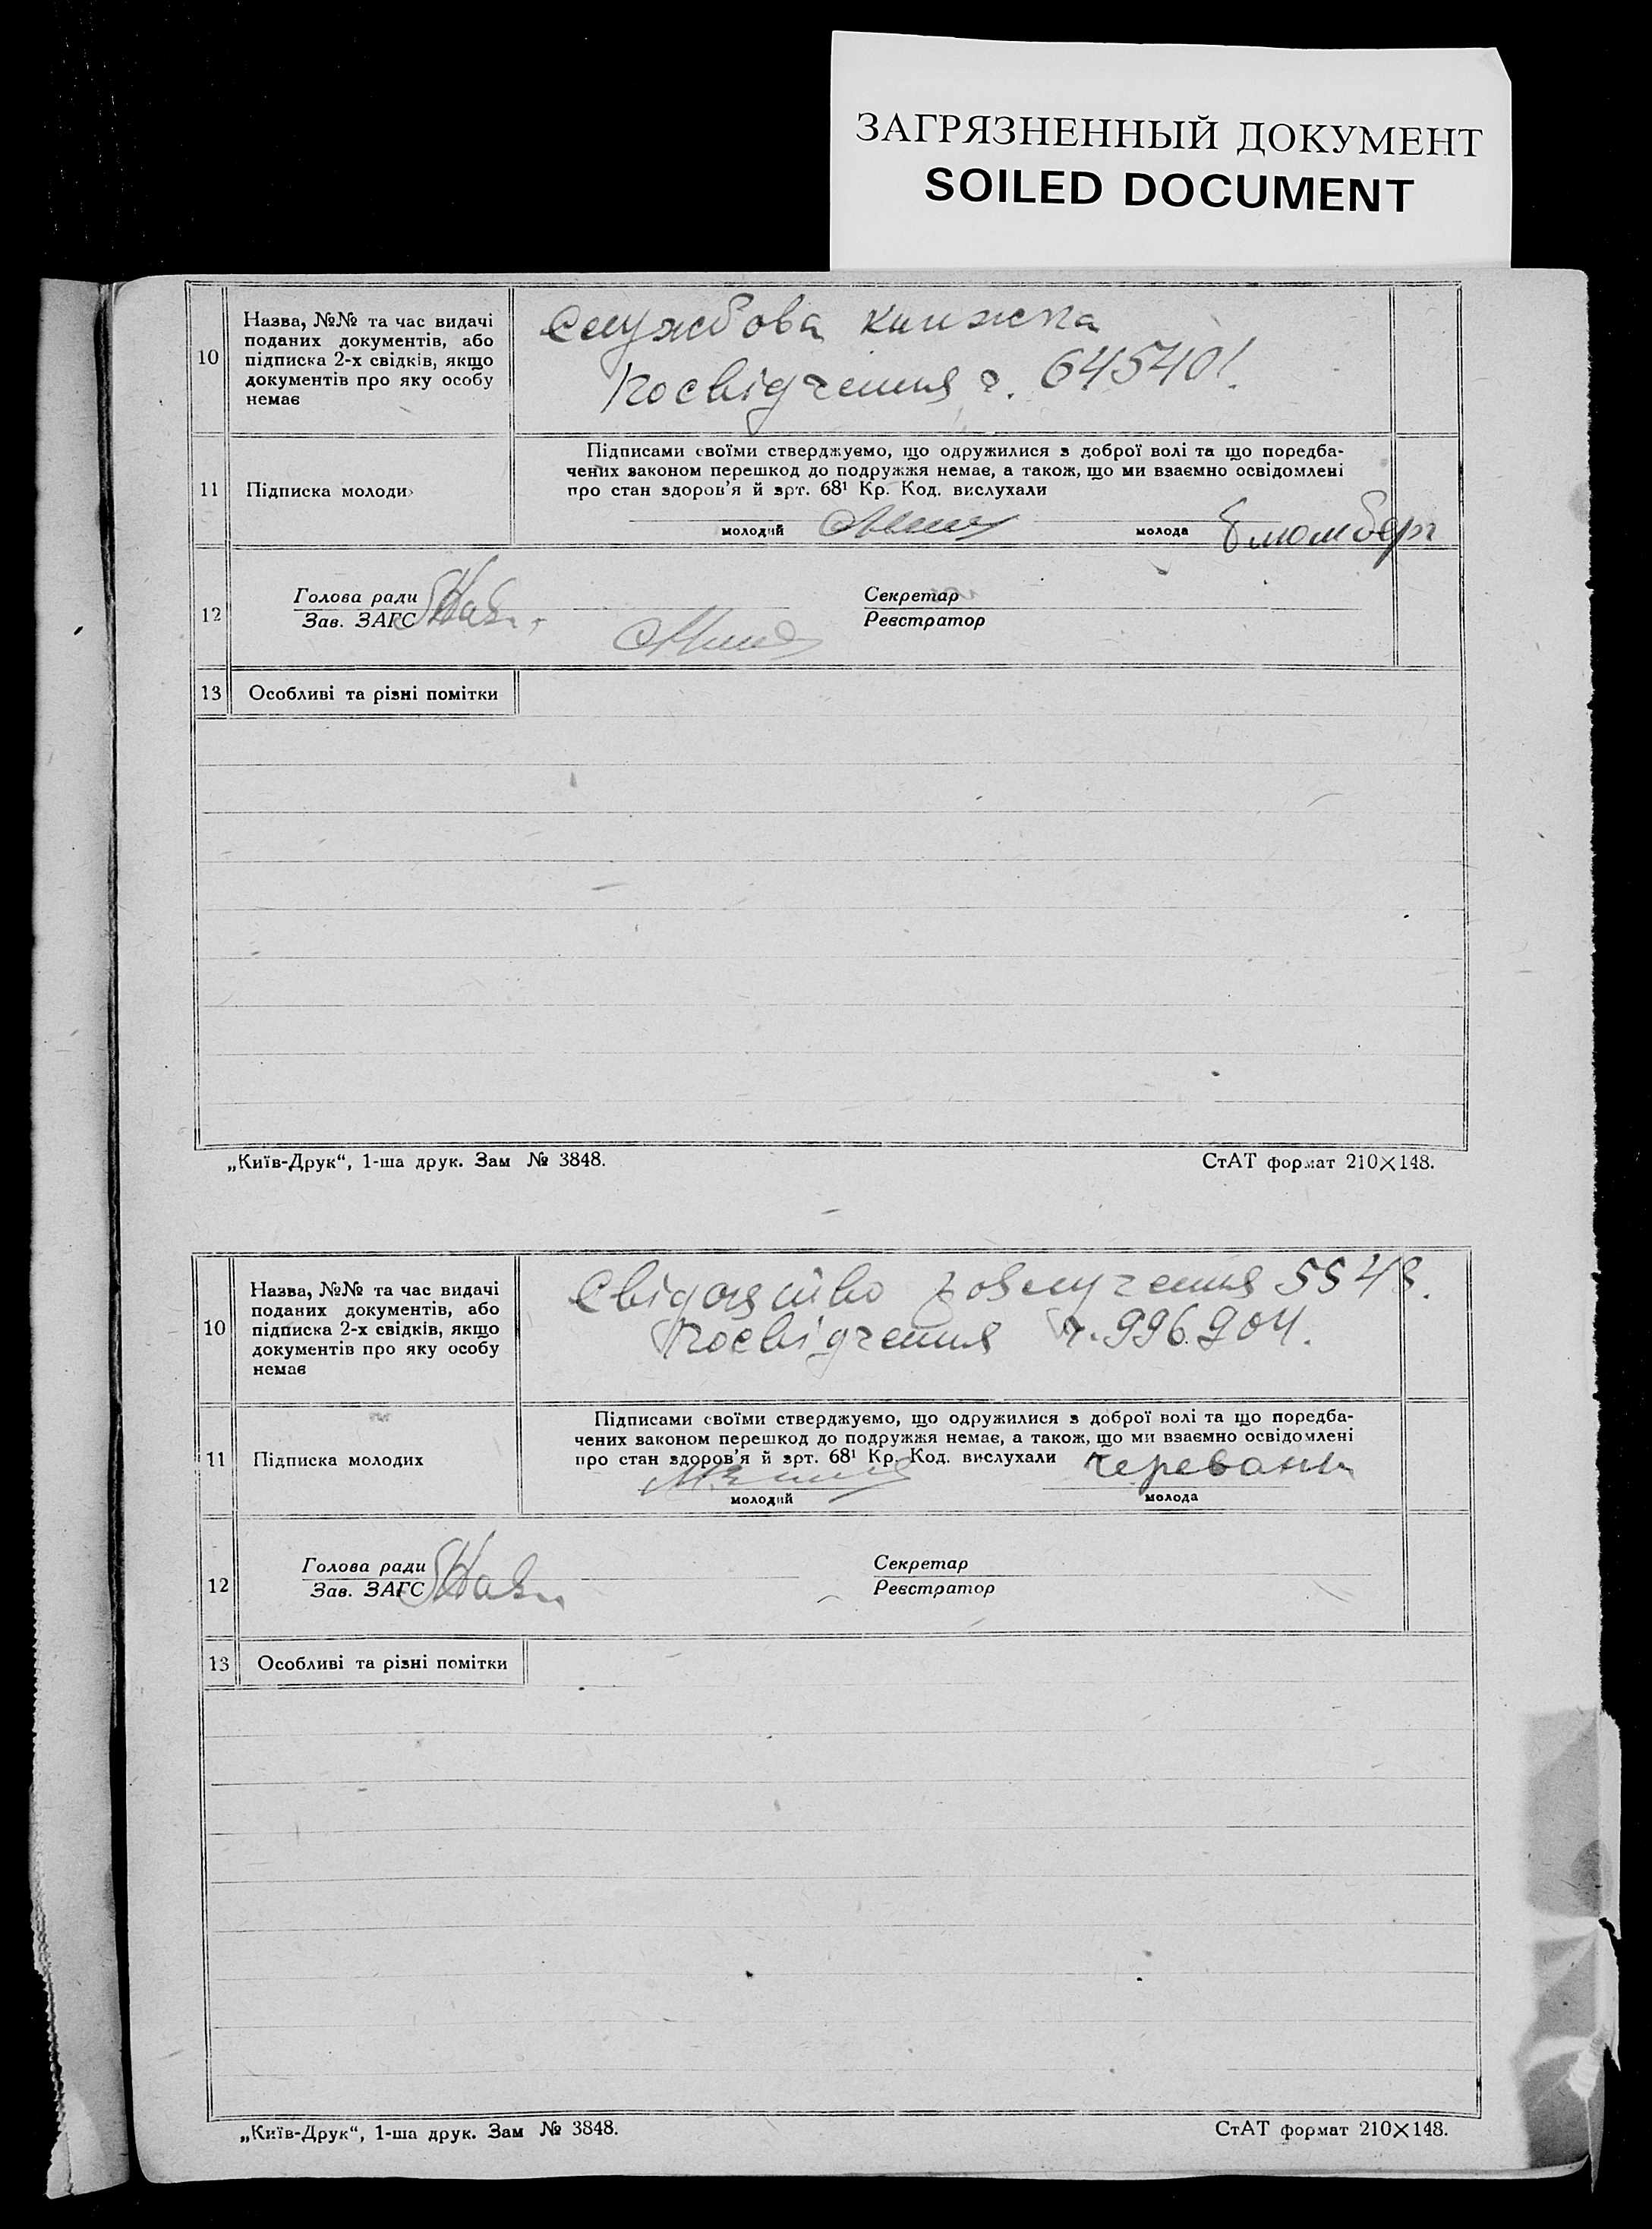 ЗАГРЯЗНЕННЫЙ ДОКУМЕНТ
SOILED DOCUMENT
10
Назва, №№ та час видачі
поданих документів, або
підписка 2-х свідків, якщо
документів про яку особу
немає
Службова книжка
Посвідчення ч. 645401.
11
Підписка молоди
Підписами своїми стверджуємо, що одружилися з доброї волі та що поредба-
чених законом перешкод до подружжя немає, а також, що ми взаємно освідомлені
про стан здоров'я й арт. 68¹ Кр. Код. вислухали
молодий
молода Блюмберг
12
Голова ради
Зав. ЗАГС
Секретар
Реєстратор
13 Особливі та різні помітки
„Київ-Друк“, 1-ша друк. Зам № 3848. СтАТ формат 210×148.
10
Назва, №№ та час видачі
поданих документів, або
підписка 2-х свідків, якщо
документів про яку особу
немає
Свідоцтво розлучення 5548.
Посвідчення ч. 996.904.
11
Підписка молодих
Підписами своїми стверджуємо, що одружилися з доброї волі та що поредба-
чених законом перешкод до подружжя немає, а також, що ми взаємно освідомлені
про стан здоров'я й арт. 68¹ Кр. Код. вислухали
молодий
молода
12
Голова ради
Зав. ЗАГС
Секретар
Реєстратор
13 Особливі та різні помітки
„Київ-Друк“, 1-ша друк. Зам № 3848. СтАТ формат 210×148.